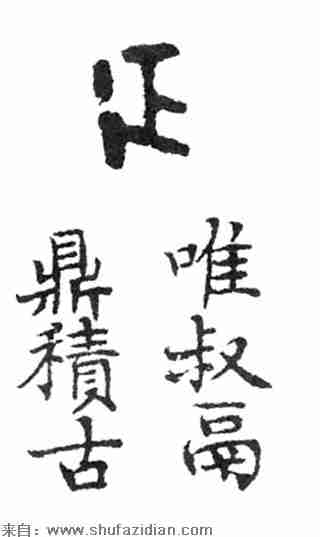 唯叔鬲
鼎積古
来自：www.shufazidian.com